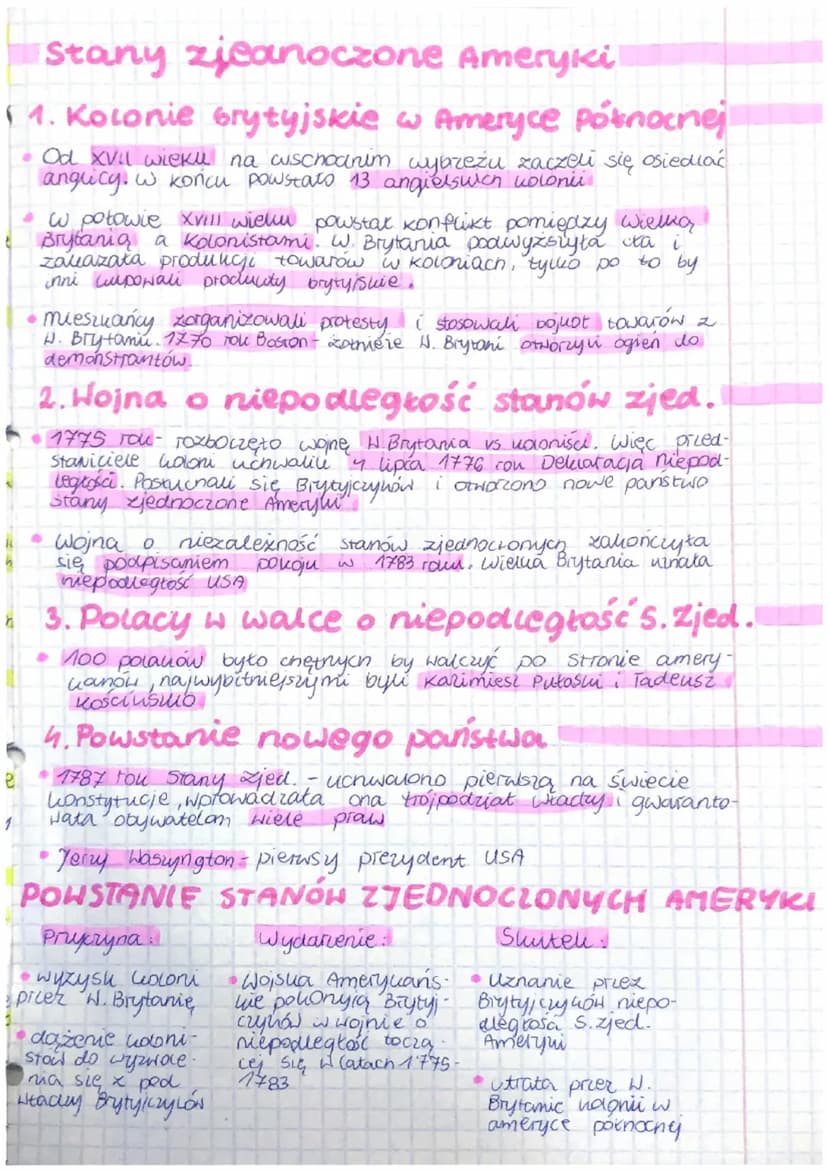 Stany zjednoczone Ameryki
1. Kolonie brytyjskie w Ameryce Północnej
• Od XVII wieku na wschodnim wybrzeżu zaczęli się osiedlać
anglicy. W końcu powstało 13 angielskich kolonii
• W połowie XVIII wieku powstał konflikt pomiędzy Wielką
Brytanią a Kolonistami. W. Brytania podwyższyła cła i
zakazała produkcji towarów w koloniach, tylko po to by
inni kupowali produkty brytyjskie.
• Mieszkańcy zorganizowali protesty i stosowali bojkot towarów z
W. Brytanii. 1770 rok Boston - żołnierze W. Brytani otworzyli ogień do
demonstrantów.
2. Wojna o niepodległość stanów zjed.
• 1775 rok - rozpoczęto wojnę W. Brytania vs koloniści. Więc przed-
stawiciele koloni uchwalili 4 lipca 1776 rok Deklaracja niepod-
ległości. Postuchali się Brytyjczyków i otworzono nowe państwo
Stany zjednoczone Ameryki.
• Wojna o niezależność stanów zjednoczonych zakończyła
się podpisaniem pokoju w 1783 roku. Wielka Brytania uznała
niepodległość USA
3. Polacy w walce o niepodległość S. Zjed.
• 100 polaków było chętnych by walczyć po stronie amery-
kanów, najwybitniejszymi byli Kazimierz Pułaski i Tadeusz
Kościuszko
4. Powstanie nowego państwa
• 1787 rok Stany zjed. - uchwalono pierwszą na świecie
konstytucje, wprowadzała ona trójpodział władzy i gwaranto-
wała obywatelom wiele praw
• Jerzy Waszyngton - pierwszy prezydent USA
POWSTANIE STANÓW ZJEDNOCZONYCH AMERYKI
Przyczyna:
• wyzysk koloni
przez W. Brytanię
• dążenie koloni-
stów do wyzwole-
nia się z pod
władzy Brytyjczyków
Wydarzenie:
• Wojska Amerykańs-
kie pokonują Brytyj-
czyków w wojnie o
niepodległość toczą-
cej się w latach 1775-
1783
Skutek:
• Uznanie przez
Brytyjczyków niepo-
dległości S. zjed.
Ameryki
• utrata przez W.
Brytanie kolonii w
ameryce północnej